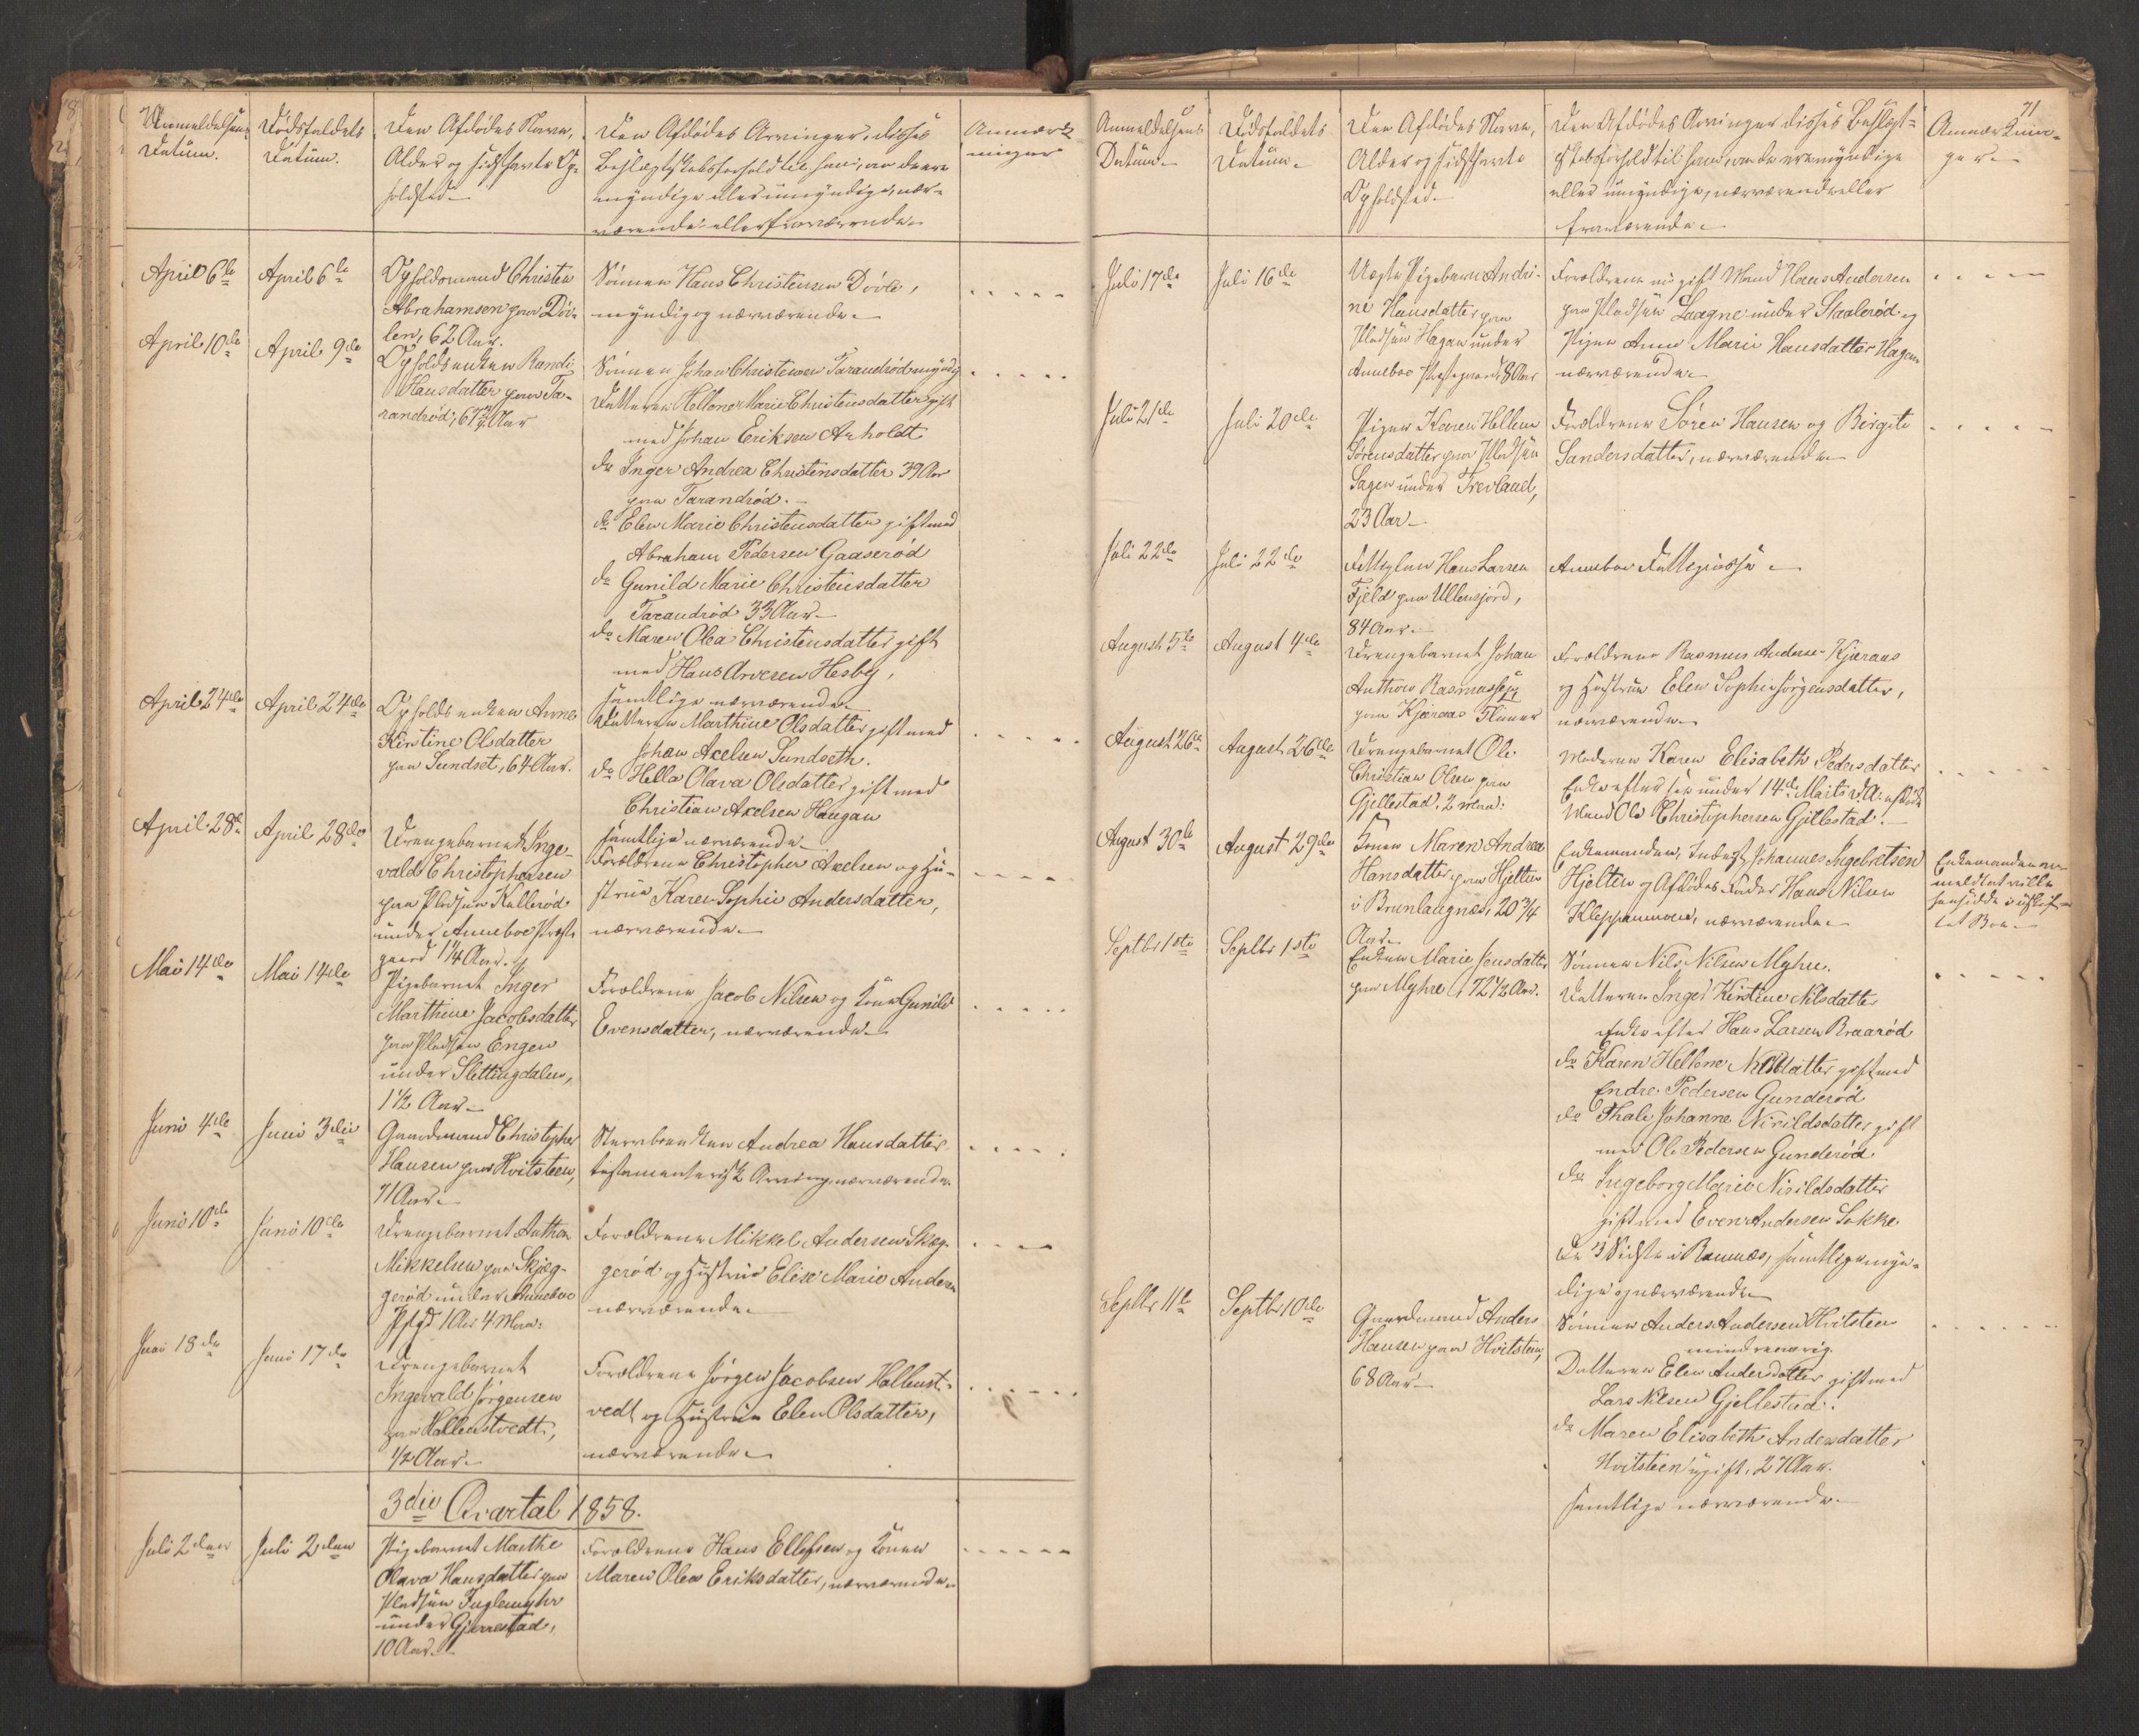 Anmeldelsens
Datum.
Dødsfaldets
Datum.
Den Afdødes Navn,
Alder og sidsthavte Op-
holdsted.
Den Afdødes Arvinger, disses
Beslægtskabsforhold til ham, om de ere
myndige eller umyndige, nær-
værende eller fraværende.
Anmærk-
ninger
April 6te
April 6te
Opholdsmand Christen
Abrahamsen paa Døv-
len, 62 Aar.
Sønnen Hans Christensen Døvle,
myndig og nærværende.
April 10de
April 9de
Opholdsenken Randi
Hansdatter paa Ta-
randrød, 67 Aar
Sønnen Johan Christensen Tarandrød myndig
Datteren Hellene Marie Christensdatter gift
med Johan Eriksen Arholdt
do Inger Andrea Christensdatter 39 Aar
paa Tarandrød.
do Elen Marie Christensdatter gift med
Abraham Pedersen Gaaserød
do Gunild Marie Christensdatter
Tarandrød 33 Aar
do Maren Olea Christensdatter gift
med Hans Arvesen Hesby,
samtlige nærværende.
April 24de
April 24de
Opholdsenken Anne
Kirstine Olsdatter
paa Sundset, 64 Aar.
Datteren Marthine Olsdatter gift med
Johan Axelsen Sundseth.
do Hella Olava Olsdatter gift med
Christian Axelsen Haugan
samtlige nærværende.
April 28de
April 28de
Drengebarnet Inge-
vald Christophersen
paa Pladsen Kallerød
under Anneboe Præste
gaard 1 1/4 Aar.
Forældrene Christopher Axelsen og Hu-
strue Karen Sophie Andersdatter,
nærværende.
Mai 14de
Mai 14de
Pigebarnet Inger
Marthine Jacobsdatter
paa Pladsen Engen
under Slettingdalen,
1 1/2 Aar
Forældrene Jacob Nilsen og Kone Gunild
Evensdatter, nærværende.
Juni 4de
Juni 3die
Gaardmand Christopher
Hansen paa Hvitsteen,
71 Aar.
Stervboenken Andrea Hansdatter
testamenterisk Arving, nærværende.
Juni 10de
Juni 10de
Drengebarnet Anthon
Mikkelsen paa Skjeg-
gerød under Anneboe
Pstgd 1 Aar 4 Mdr.
Forældrene Mikkel Andersen Skjeg-
gerød og Hustrue Elise Marie Andersen
nærværende.
Juni 18de
Juni 17de
Drengebarnet
Ingevald Jørgensen
paa Hallenstvedt,
1/2 Aar.
Forældrene Jørgen Jacobsen Hallenst-
vedt og Hustrue Elen Olsdatter,
nærværende.
3die Qvartal 1858.
Juli 2den
Juli 2den
Pigebarnet Marthe
Olava Hansdatter paa
Pladsen Fuglemyhr
under Gjerrestad,
10 Aar.
Forældrene Hans Ellefsen og Konen
Maren Olea Eriksdatter, nærværende.
71
Anmeldelsens
Datum.
Dødsfaldets
Datum.
Den Afdødes Navn,
Alder og sidsthavte
Opholdsted.
Den Afdødes Arvinger disses Beslægt-
skabsforhold til ham, om de ere myndige
eller umyndige, nærværende eller
fraværende.
Anmærknin-
ger.
Juli 17de
Juli 16de
Uægte Pigebarn Andri-
ne Hansdatter paa
Pladsen Hagan under
Anneboe Præstegaard 8 Aar
Forældrene ugift Mand Hans Andersen
paa Pladsen Laagne under Staalerød og
Pigen Anne Marie Hansdatter Hagan
nærværende.
Juli 21de
Juli 20de
Pigen Karen Hellene
Sørensdatter paa Pladsen
Sagen under Trevland,
23 Aar
Forældrene Søren Hansen og Birgite
Sandersdatter, nærværende.
Juli 22de
Juli 22de
Fattiglem Hans Larsen
Fjeld paa Ullensjord,
84 Aar.
Anneboe Fattigkasse.
August 5te
August 4de
Drengebarnet Johan
Anthon Rasmussen
paa Kjæraas
Forældrene Rasmus Anderse Kjæraas
og Hustrue Elen Sophie Jørgensdatter,
nærværende.
August 26de
August 26de
Drengebarnet Ole
Christian Olsen paa
Gjellestad, 2 Mdr.
Moderen Karen Elisabeth Pedersdatter
Enke efter sin under 14de Marts d. A. afdøde
Mand Ole Christophersen Gjellestad.
August 30te
August 29de
Konen Maren Andrea
Hansdatter paa Hjelten
i Brunlaugnæs, 20 3/4
Aar.
Enkemanden, Inderst Johannes Ingebretsen
Hjelten og Afdødes Fader Hans Nilsen
Kleppanmoen, nærværende.
Enkemanden an-
meldt at ville
hensidde i uskif-
tet Boe.
Septbr 1ste
Septbr 1ste
Enken Marie Jensdatter
paa Myhre, 72 1/2 Aar.
Sønnen Nils Nilsen Myhre.
Datteren Inger Kirstine Nilsdatter
Enke efter Hans Larsen Braarød
do Karen Hellene Nilsdatter gift med
Endre Pedersen Gunderød
do Thale Johanne Nirildsdatter gift
med Ole Pedersen Gunderød
do Ingeborg Marie Nirildsdatter
gift med Even Andersen Sokke
de 3 Sidste i Ramnæs, samtlige myn-
dige og nærværende
Septbr 11te
Septbr 10de
Gaardmand Anders
Hansen paa Hvitsteen,
68 Aar.
Sønnen Anders Andersen Hvitsteen
mindreaarig.
Datteren Elen Andersdatter gift med
Lars Nilsen Gjellestad.
do Maren Elisabeth Andersdatter
Hvitsteen ugift, 27 Aar.
samtlige nærværende.